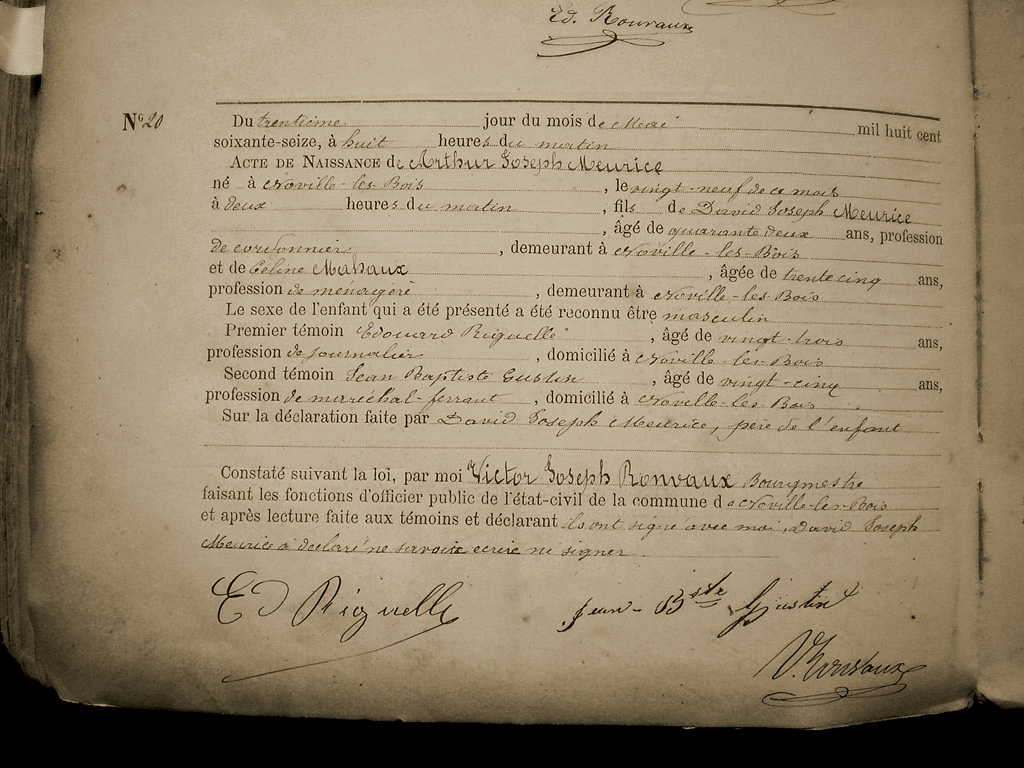 Ed. Ronvaux
N° 20
Du trentième jour du mois de Mai mil huit cent
soixante-seize, à huit heures du matin
ACTE DE NAISSANCE de Arthur Joseph Meurice
né à Noville-les-Bois, le vingt-neuf de ce mois
à deux heures du matin, fils de David Joseph Meurice
, âgé de quarante deux ans, profession
de cordonnier, demeurant à Noville-les-Bois
et de Céline Mahaux, âgée de trente cinq ans,
profession de ménagère, demeurant à Noville-les-Bois
Le sexe de l'enfant qui a été présenté a été reconnu être masculin
Premier témoin Edouard Riguelle, âgé de vingt-trois ans,
profession de journalier, domicilié à Noville-les-Bois
Second témoin Jean Baptiste Gustin, âgé de vingt-cinq ans,
profession de maréchal-ferrant, domicilié à Noville-les-Bois
Sur la déclaration faite par David Joseph Meurice, père de l'enfant
Constaté suivant la loi, par moi Victor Joseph Ronvaux Bourgmestre
faisant les fonctions d'officier public de l'état-civil de la commune de Noville-les-Bois
et après lecture faite aux témoins et déclarant ils ont signé avec moi, David Joseph
Meurice a déclaré ne savoir écrire ni signer
Ed Riguelle Jean-Bste Gustin
V. Ronvaux